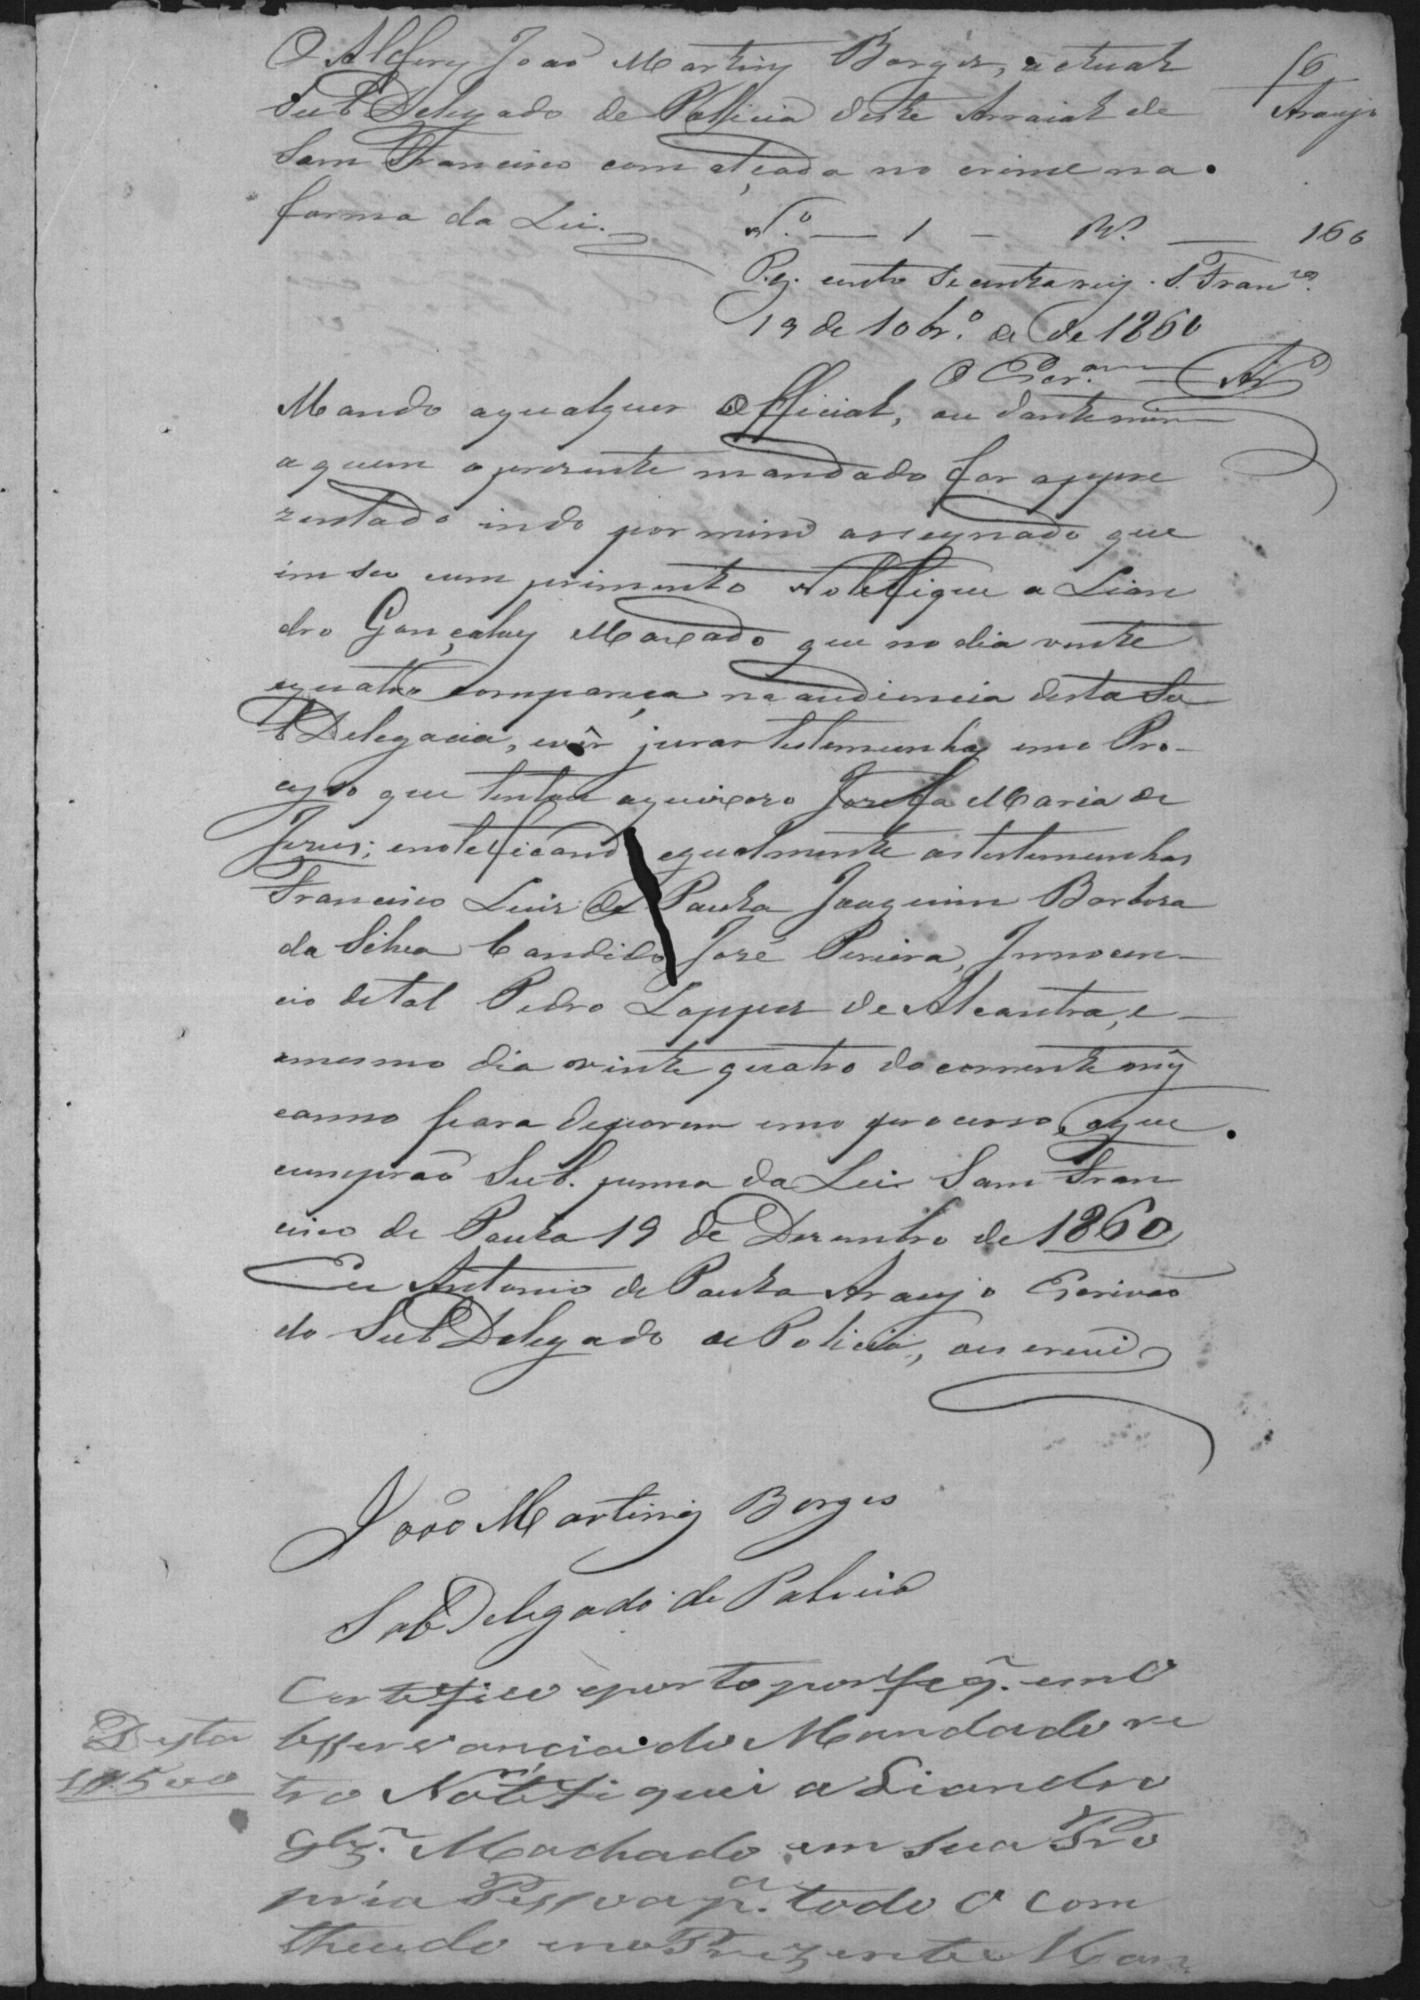 O Alferes João Martins Borges, actual
Sub Delegado de Policia deste Arraial de
Sam Francisco com alçada no crime na
forma da Lei.
16
Araujo
N.º — 1 — R.s — 160
Pg. cento secenta reis. S. Fran.co
19 de 10br.º de de 1860
O Escr.am Ar.º
Mando aqualquer Official, ou dante mim
aquem o prezente mandado for appre
zentado indo por mim assegnado que
im seo cumprimento Notefique a Lian
dro Gonçalves Maxado que no dia vinte
equatro compareça na audiencia desta Su
b Delegacia, evêr jurar testemunhas em o Pro-
cesso que tenta aqueixoza Jozefa Maria de
Jezus; enoteficando egualmente as testemunhas
Francisco Luis de Paula Joaquim Barboza
da Silva Candido José Pereira, Innocen-
cio de tal Pedro Loppes de Alcantra, e-
mesmo dia vinte quatro do corrente mêz
eanno para deporem em o processo, oque
cumprão Sub. penna da Lei Sam Fran
cisco de Paula 19 de Dezembro de 1860
Eu Antonio de Paula Araujo Escrivão
do Sub Delegado de Policia, ou escrevi
João Martins Borges
Sub Delegado de Policia
Certefico eporto por fe q. em O
bsservancia do Mandado re
tro Notefiquei a Liandro
Glz. Machado em sua Pro
pria Pessoa p.a todo o Com
theudo em o Prezente Man
Desta
1$500